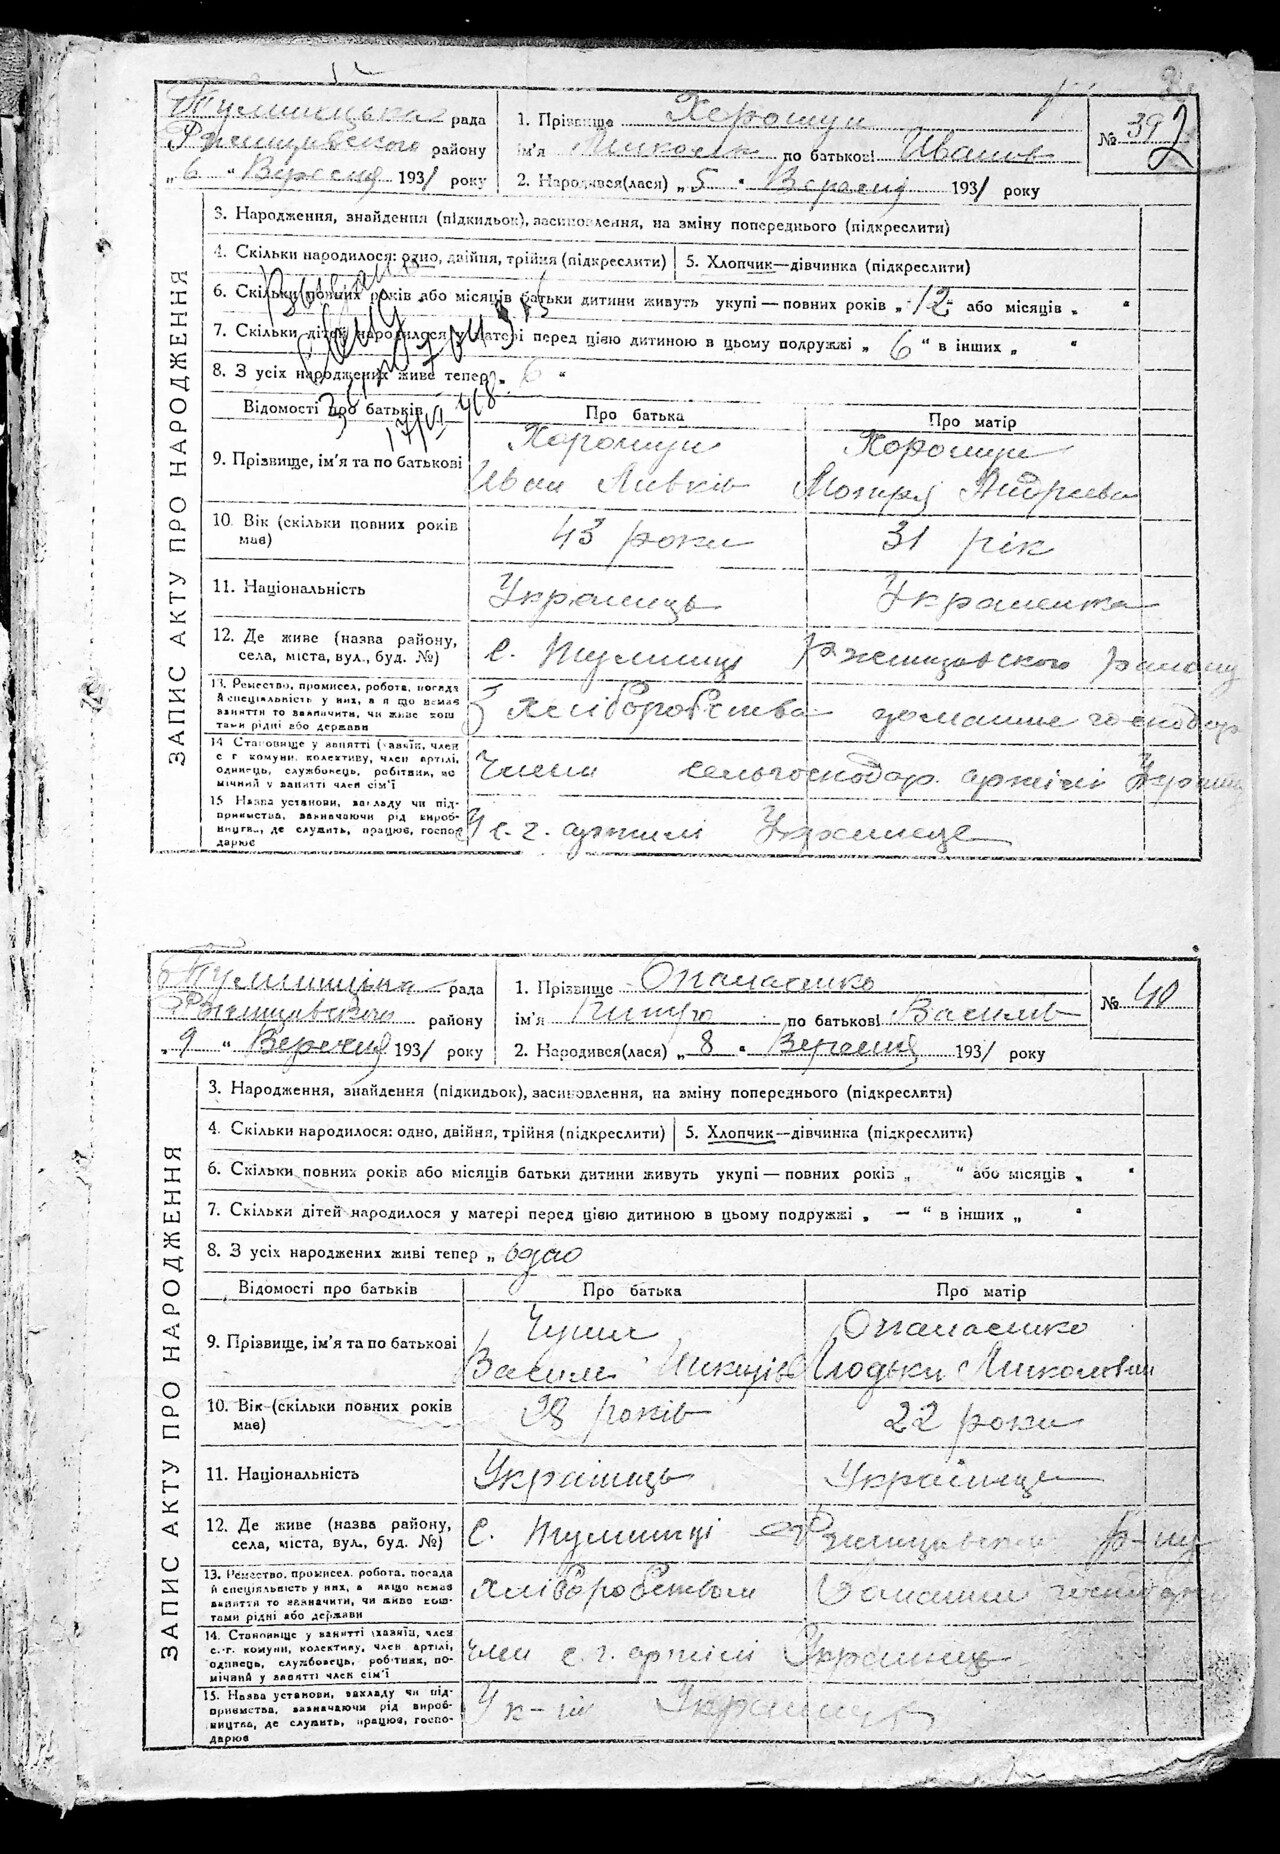 рада
району
„ 6 “ Вересня 1931 року
1. Прізвище Хорощун
ім'я Микола по батькові Иванов
2. Народився(лася) „ 5 “ Вересня 1931 року
№ 39
2
ЗАПИС АКТУ ПРО НАРОДЖЕННЯ
3. Народження, знайдення (підкидьок), засиновлення, на зміну попереднього (підкреслити)
4. Скільки народилося: одно, двійня, трійня (підкреслити)
5. Хлопчик—дівчинка (підкреслити)
6. Скільки повних років або місяців батьки дитини живуть укупі — повних років „ 12 “ або місяців „ “
7. Скільки дітей народилося у матері перед цією дитиною в цьому подружжі „ 6 “ в інших „ “
8. З усіх народжених живе тепер „ 6 “
17/VI 48
Відомості про батьків
Про батька
Про матір
9. Прізвище, ім'я та по батькові
Хорощун
Иван Левків
Хорощун
Андреева
10. Вік (скільки повних років має)
43 роки
31 рік
11. Національність
Украинць
Украинка
12. Де живе (назва району, села, міста, вул., буд. №)
с. Тулинці Ржищевского району
13. Ремество, промисел, робота, посада й спеціяльність у них, а я що немає заняття то зазначити, чи живе кош тами рідні або держави
З хліборобства домашне господар
14 Становище у занятті (хазяїн, член с г комуни, колективу, член артілі, одинець, службовець, робітник, по мічний у занятті член сім'ї
Член сельгосподар. артілі
15 Назва установи, закладу чи підприємства, зазначаючи рід виробництв., де служить, працює, господарює
У с. г. артилі
рада
району
„ 9 “ Вересня 1931 року
1. Прізвище Опанасенко
ім'я по батькові Василів
2. Народився(лася) „ 8 “ Вересня 1931 року
№ 40
ЗАПИС АКТУ ПРО НАРОДЖЕННЯ
3. Народження, знайдення (підкидьок), засиновлення, на зміну попереднього (підкреслити)
4. Скільки народилося: одно, двійня, трійня (підкреслити)
5. Хлопчик—дівчинка (підкреслити)
6. Скільки повних років або місяців батьки дитини живуть укупі — повних років „ “ або місяців „ “
7. Скільки дітей народилося у матері перед цією дитиною в цьому подружжі „ — “ в інших „ “
8. З усіх народжених живі тепер „ одно
Відомості про батьків
Про батька
Про матір
9. Прізвище, ім'я та по батькові
Василь
Опанасенко
Миколівни
10. Вік (скільки повних років має)
28 років
22 роки
11. Національність
Українець
Українка
12. Де живе (назва району, села, міста, вул., буд. №)
с. Тулинці Ржищевского р-ну
13. Ремество, промисел, робота, посада й спеціяльність у них, а якщо немає заняття то зазначити, чи живе коштами рідні або держави
хліборобством
14. Становище у занятті (хазяїн, член с.-г. комуни, колективу, член артілі, одинець, службовець, робітник, помічний у занятті член сім'ї
член с. г. артілі
15. Назва установи, закладу чи підприємства, зазначаючи рід виробництва, де служить, працює, господарює